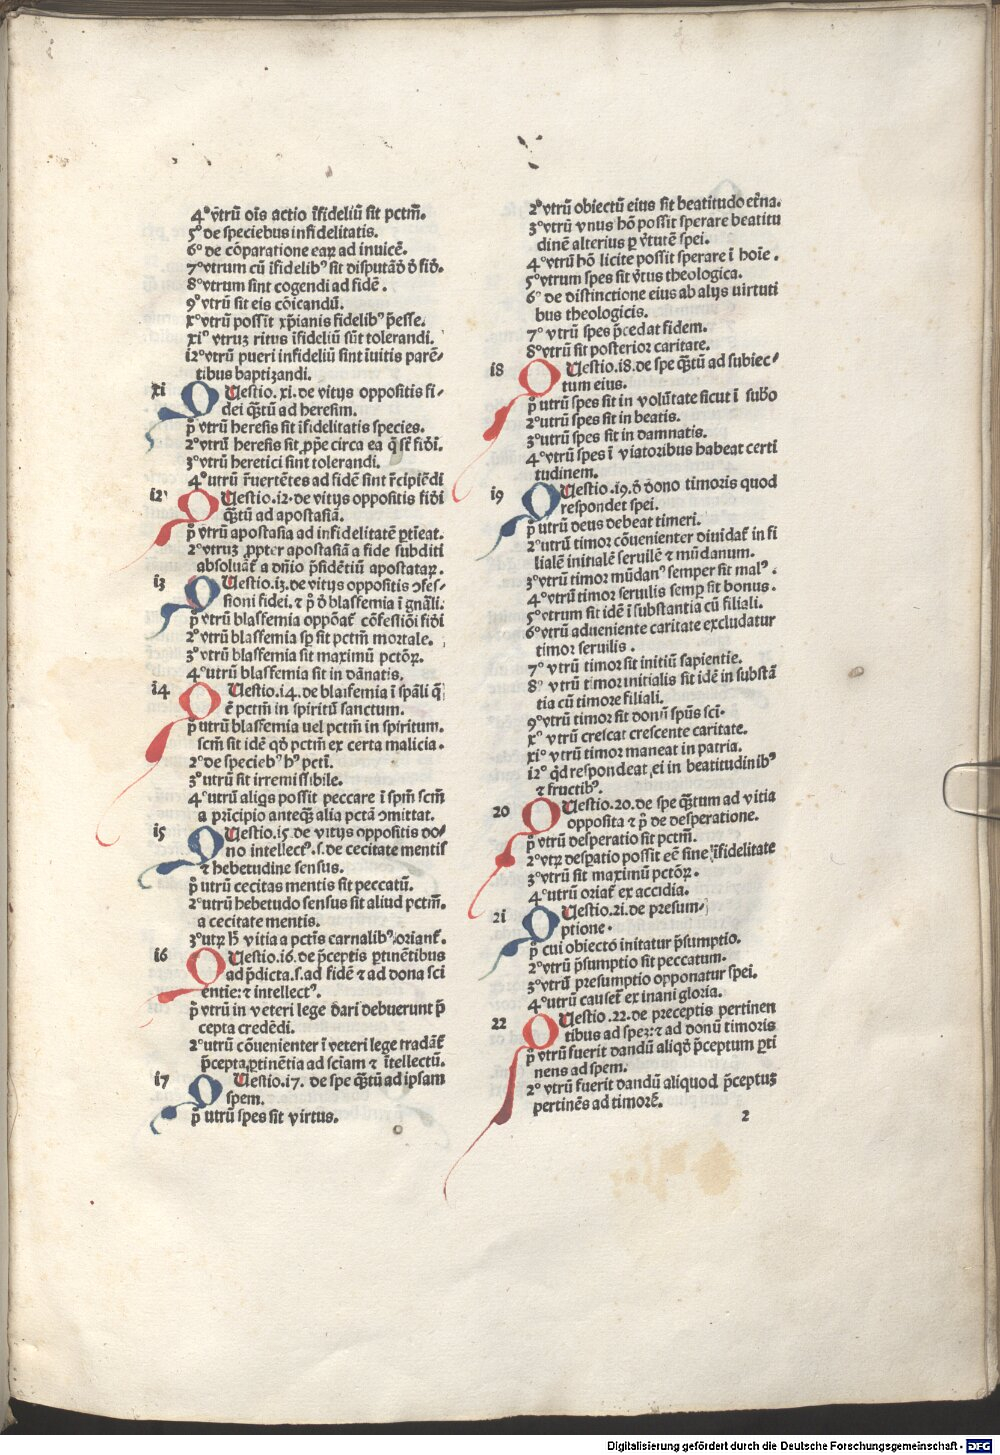 4° vtrū oīs actio īfideliū sit pctm̄.
5° de speciebus infidelitatis.
6° de cōparatione eaꝝ ad inuicē.
7° vtrum cū īfidelibꝰ sit disputādū de fide.
8° vtrum sint cogendi ad fidē.
9° vtrū sit eis cōicandū.
x° vtrū possīt xp̄ianis fidelibꝰ p̄esse.
xi° vtruꝫ ritus īfideliū sūt tolerandi.
i2° vtrū pueri infideliū sint īuitis parē-
tibus baptizandi.
xi QUestio .xi. de vitijs oppositis fi-
dei qꝫtū ad heresim.
p̊ vtrū heresis sit īfidelitatis species.
2° vtrū heresis sit ꝓpꝛie circa ea q̄ sūt fidei.
3° vtrū heretici sint tolerandi.
4° utrū r̄uertētes ad fidē sint r̄cipiēdi
i2 QUestio .i2. de vitijs oppositis fidei
qꝫtū ad apostasiā.
p̊ vtrū apostasia ad infidelitatē ꝑtīeat.
2° vtruꝫ ꝓpter apostasiā a fide subditi
absoluāt̄ a dn̄io p̄sidētiū apostataꝝ.
i3 QUestio .i3. de vitijs oppositis ꝯfes-
sioni fidei. ⁊ p̊ de blasfemia ī gn̄ali.
p̊ vtrū blasfemia oppōat̄ cōfessiōi fidei
2° vtrū blasfemia sp̄ sit pctm̄ mortale.
3° vtrū blasfemia sit maximū pctōꝝ.
4° utrū blasfemia sit in dānatis.
i4 QUestio .i4. de blasfemia ī spāli q̄
ē pctm̄ in spiritū sanctum.
p̊ utrū blasfemia uel pctm̄ in spiritum.
scm̄ sit idē qd̄ pctm̄ ex certa malicia.
2° de speciebꝰ hꝰ pcti.
3° utrū sit irremissibile.
4° utrū aliqs possit peccare ī spm̄ scm̄
a pͥncipio anteqꝫ alia pctā ꝯmittat.
i5 QUestio .i5. de vitijs oppositis do-
no intellectꝰ .s. de cecitate mentis
⁊ hebetudine sensus.
p̊ utrū cecitas mentis sit peccatū.
2° utrū hebetudo sensus sit aliud pctm̄.
a cecitate mentis.
3° utꝝ h̄ vitia a pctīs carnalibꝰ oriant̄.
i6 QUestio .i6. de p̄ceptis ꝑtinētibus
ad p̄dicta .s. ad fidē ⁊ ad dona sci
entie: ⁊ intellectꝰ.
p̊ vtrū in veteri lege dari debuerunt p̄
cepta credēdi.
2° utrū cōuenienter ī veteri lege tradāt̄
p̄cepta ꝑtinētia ad sciam̄ ⁊ ītellectū.
i7 QUestio .i7. de spe qꝫtū ad ipsam
spem.
p̊ utrū spes sit virtus.
2° vtrū obiectū eius sit beatitudo etr̄na.
3° vtrū vnus hō possit sperare beatitu
dinē alterius ꝑ v̄tutē spei.
4° vtrū hō licite possit sperare ī hoīe.
5° vtrum spes sit v̄tus theologica.
6° de distinctione eius ab alijs uirtuti
bus theologicis.
7° vtrū spes p̄cedat fidem.
8° vtrū sit posterior caritate.
i8 QUestio .i8. de spe qꝫtū ad subiec-
tum eius.
p̊ utrū spes sit in volūtate sicut ī subo
2° utrū spes sit in beatis.
3° utrū spes sit in damnatis.
4° vtrū spes ī viatoribus habeat certi
tudinem.
i9 QUestio .i9. de dono timoris quod
respondet spei.
p̊ utrū deus debeat timeri.
2° utrū timor cōuenienter diuidat̄ in fi
lialē ininalē seruilē ⁊ mūdanum.
3° vtrū timor mūdanꝰ semper sit malꝰ.
4° vtrū timor seruilis semꝑ sit bonus.
5° vtrum sit idē ī substantia cū filiali.
6° vtrū adueniente caritate excludatur
timor seruilis.
7° vtrū timor sit initiū sapientie.
8° vtrū timor initialis sit idē in substā
tia cū timore filiali.
9° vtrū timor sit donū spūs sci.
x° vtrū crescat crescente caritate.
xi° vtrū timor maneat in patria.
i2° qd̄ respondeat ei in beatitudinibꝰ
⁊ fructibꝰ.
20 QUestio .20. de spe qꝫtum ad vitia
opposita ⁊ p̊ de desperatione.
p̊ vtrū desperatio sit pctm̄.
2° vtꝝ despatio possit eē sine īfidelitate
3° vtrū sit maximū pctōꝝ.
4° utrū oriat̄ ex accidia.
2i QUestio .2i. de presum-
ptione.
p̊ cui obiecto initatur p̄sumptio.
2° vtrū p̄sumptio sit peccatum.
3° vtrū presumptio opponatur spei.
4° utrū causet̄ ex inani gloria.
22 QUestio .22. de preceptis pertinen
tibus ad speꝫ: ⁊ ad donū timoris
p̊ vtrū fuerit dandū aliqd̄ p̄ceptum ꝑti
nens ad spem.
2° vtrū fuerit dandū aliquod p̄ceptuꝫ
pertinēs ad timorē.
2
Digitalisierung gefördert durch die Deutsche Forschungsgemeinschaft - DFG